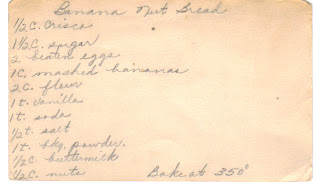 Banana Nut Bread
1/2 C. Crisco
1 1/2 C. sugar
2 beaten eggs
1 C. mashed bananas
2 C. flour
1 t. vanilla
1 t. soda
1/2 t. salt
1 t. bkg. powder
1/2 C. buttermilk
1/2 C. nuts
Bake at 350°